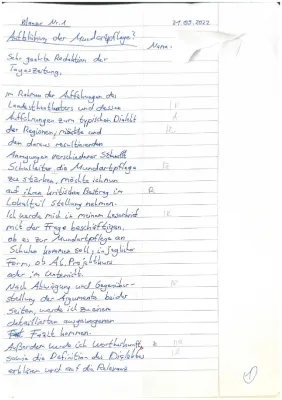 Klausur Nr. 1 21.03.2022
Aufblühung der Mundartpflege?
Name:
Sehr geehrte Redaktion der
Tageszeitung,
im Rahmen der Aufführungen des
Landestheaters und dessen
Aufführungen zum typischen Dialekt
der Regionen, möchte und
den daraus resultierenden
Anregungen verschiedener
Schulleiter die Mundartpflege
zu stärken, möchte ich nun
auf ihren kritischen Beitrag im
Lokalteil Stellung nehmen.
Ich werde mich in meinem Leserbrief
mit der Frage beschäftigen,
ob es zur Mundartpflege an
Schulen kommen soll, in jeglicher
Form, ob AG, Projektkurs
oder im Unterricht.
Nach Abwägung und Gegenüber-
stellung der Argumente beider
Seiten, werde ich zu einem
detaillierten ausgewogenen
Fazit kommen.
Außerdem werde ich Wortherkunft,
sowie die Definition des Dialektes
erklären und auf die Relevanz
1